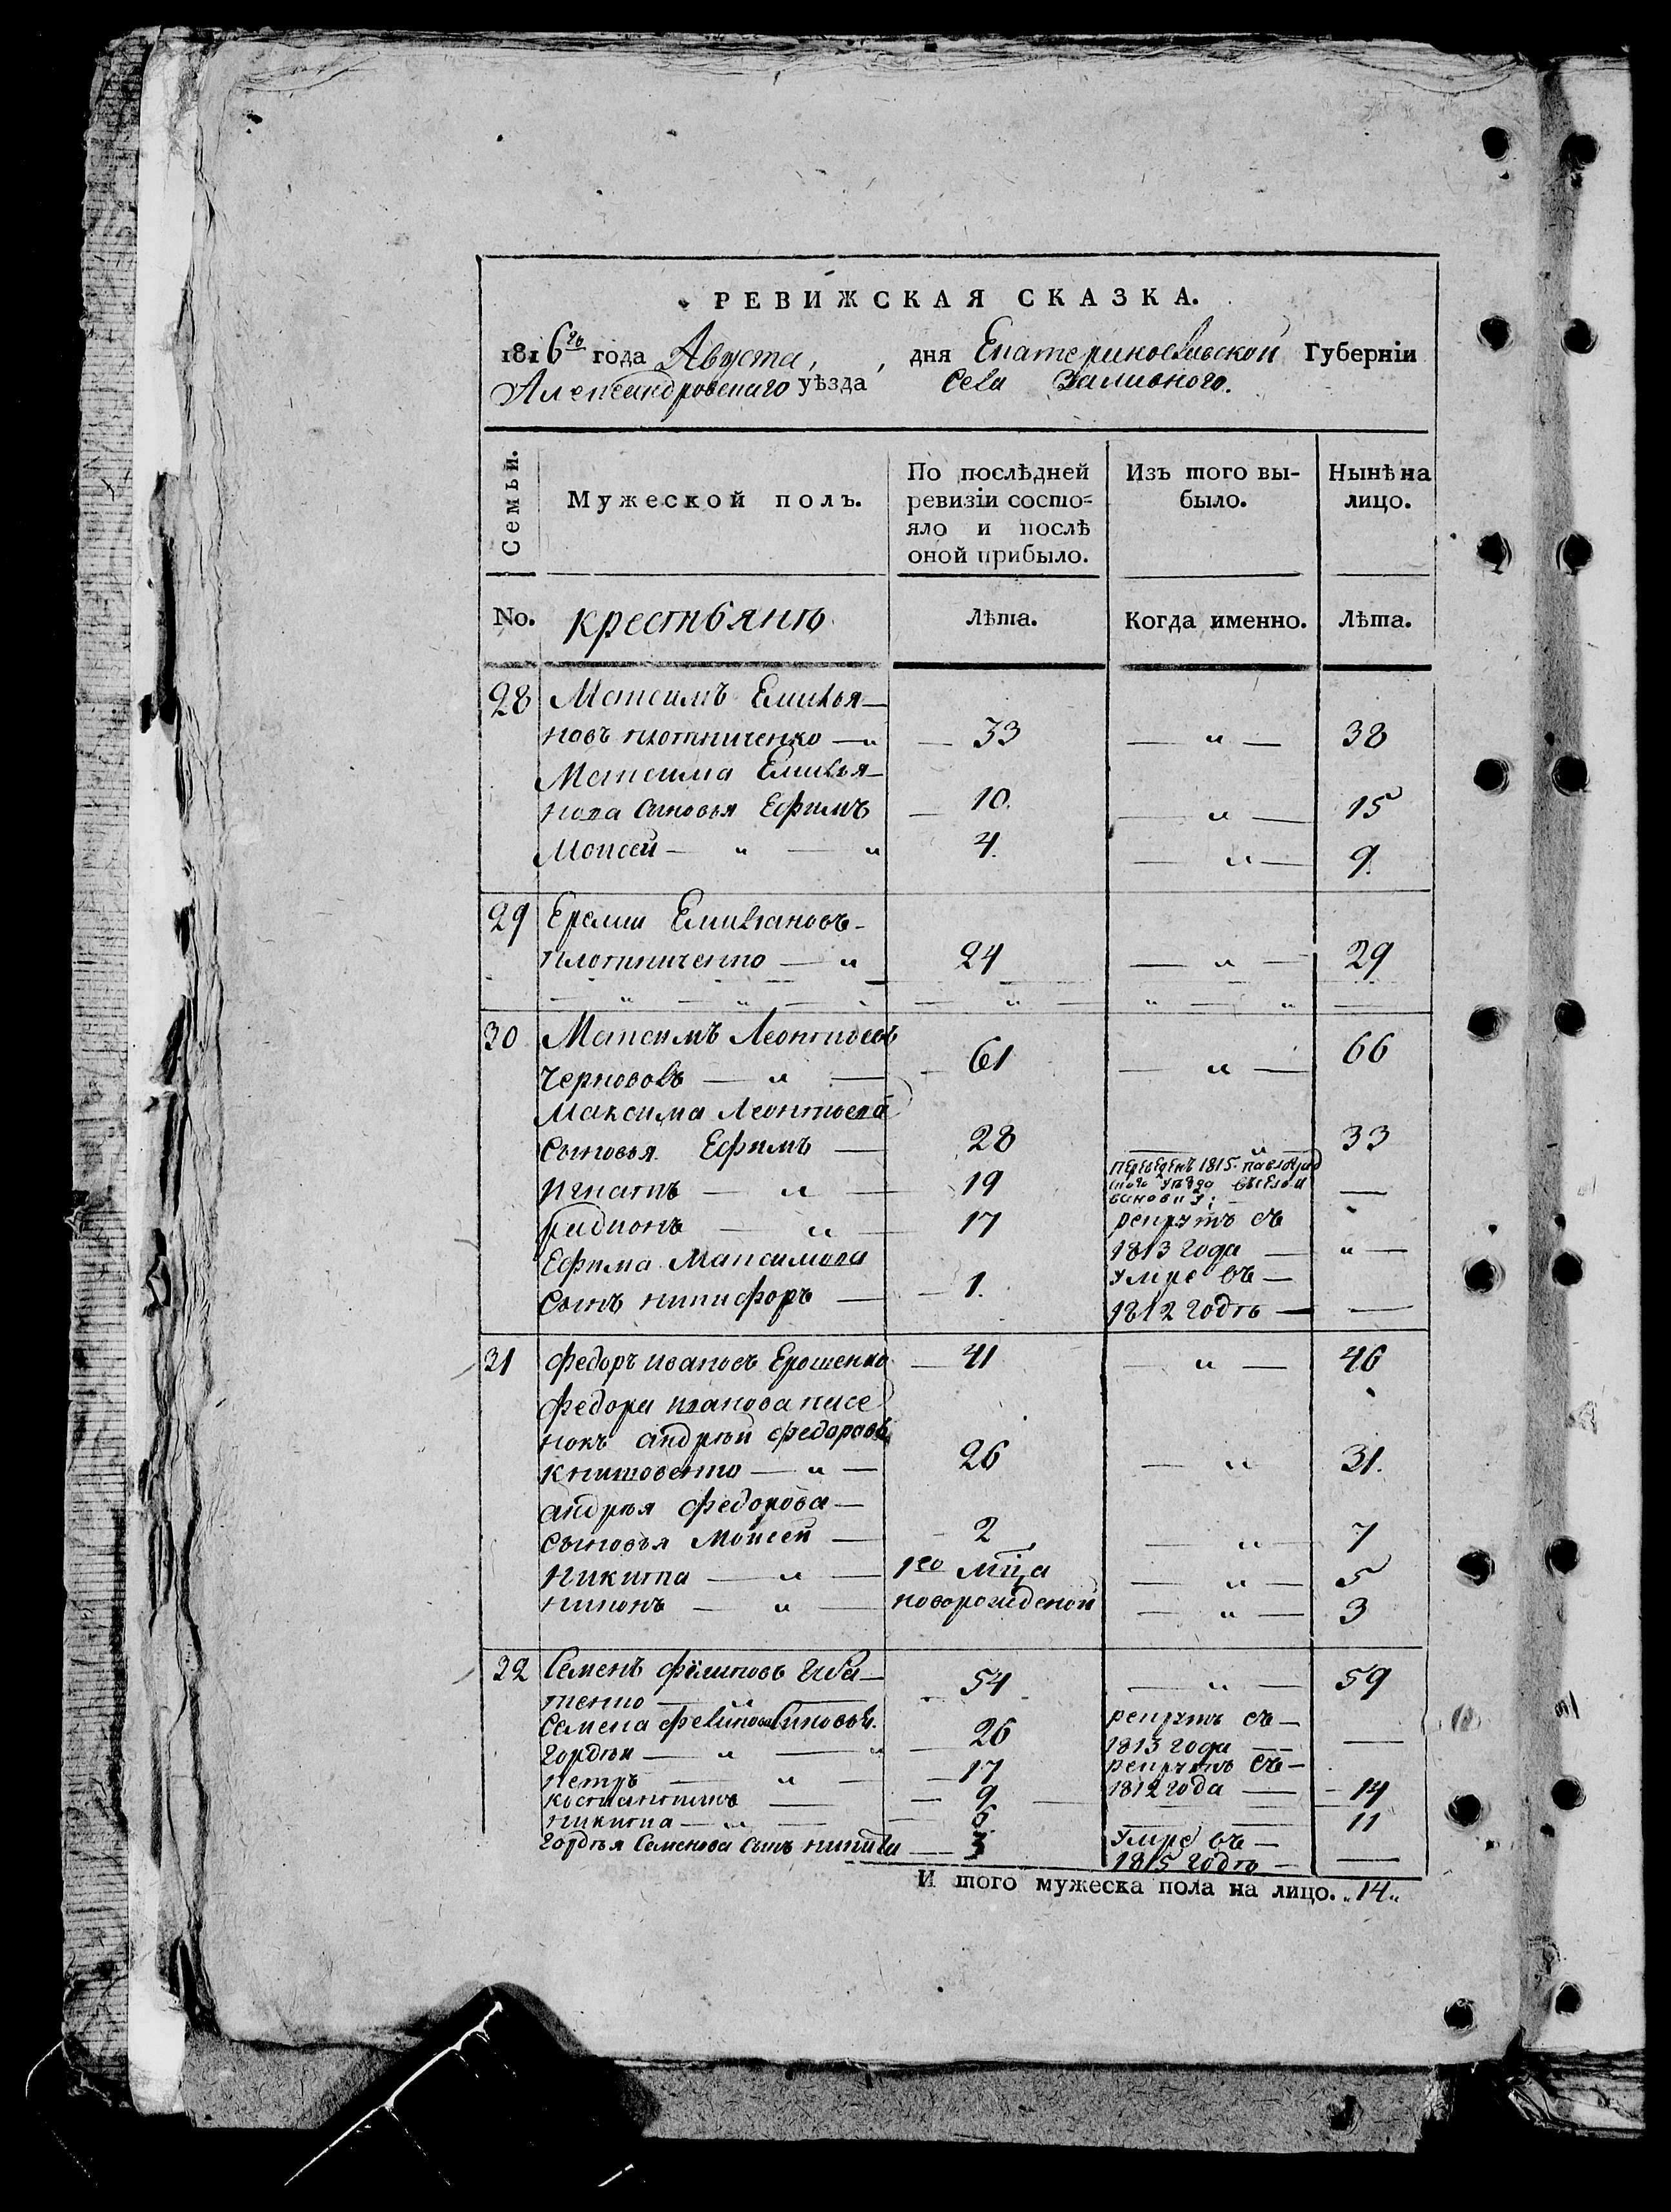 РЕВИЖСКАЯ СКАЗКА.
1816го года Августа, , дня Екатеринославской Губерніи
Александровскаго уѣзда Села Заливного.
Семьи. Мужеской полъ. По послѣдней ревизіи состо= яло и послѣ оной прибыло. Изъ того вы- было. Нынѣ на лицо.
No. крестьянъ Лѣта. Когда именно. Лѣта.
28 Максимъ Емилья—
новъ плотниченко — „ — 33 — „ — 38
Максима Емилья—
нова Сыновья Ефимъ — 10. — „ — 15
Моисей — „ — „ 4. — „ — 9.
29 Еремии Емилiановъ—
плотниченко — „ 24 — „ — 29
— „ — „ — „ — „ — „ — „ —
30 Максимъ Леонтиевъ
Черноволъ — „ — 61 — „ — 66
Максима Леонтиева
Сыновья Ефимъ — 28 — „ — 33
Игнатъ — „ — 19 переведенъ 1815. павлоград
ского уезда —
радионъ — „ — 17 рекрутъ съ
1813 года — „ —
Ефима Максимова
Сынъ никифоръ — — 1. Умре въ —
1812 годѣ — —
31 Федоръ ивановъ Ерошенко — 41 — „ — 46
Федора иванова пасе
нокъ андрѣй Федоровъ
книшовенко — „ — 26 — „ 31.
андрѣя Федорова —
сыновья Моисей — — 2 — „ — 7
Никита — „ — 1го мца — „ — 5
никонъ — „ — новорожденой — „ — 3
32 Семенъ филиповъ
тенко — 54 — „ — 59
Семена Филипова Сыновья. рекрутъ съ —
гордѣй — „ — „ — 26 1813 года — —
петръ — „ — — 17 рекрутъ съ —
костантинъ — — 9 1812 года — — 14
никита — „ — — 6 — 11
гордѣя Семенова Сынъ никита — 3 Умре въ —
1815 годѣ — —
И того мужеска пола на лицо. „14„